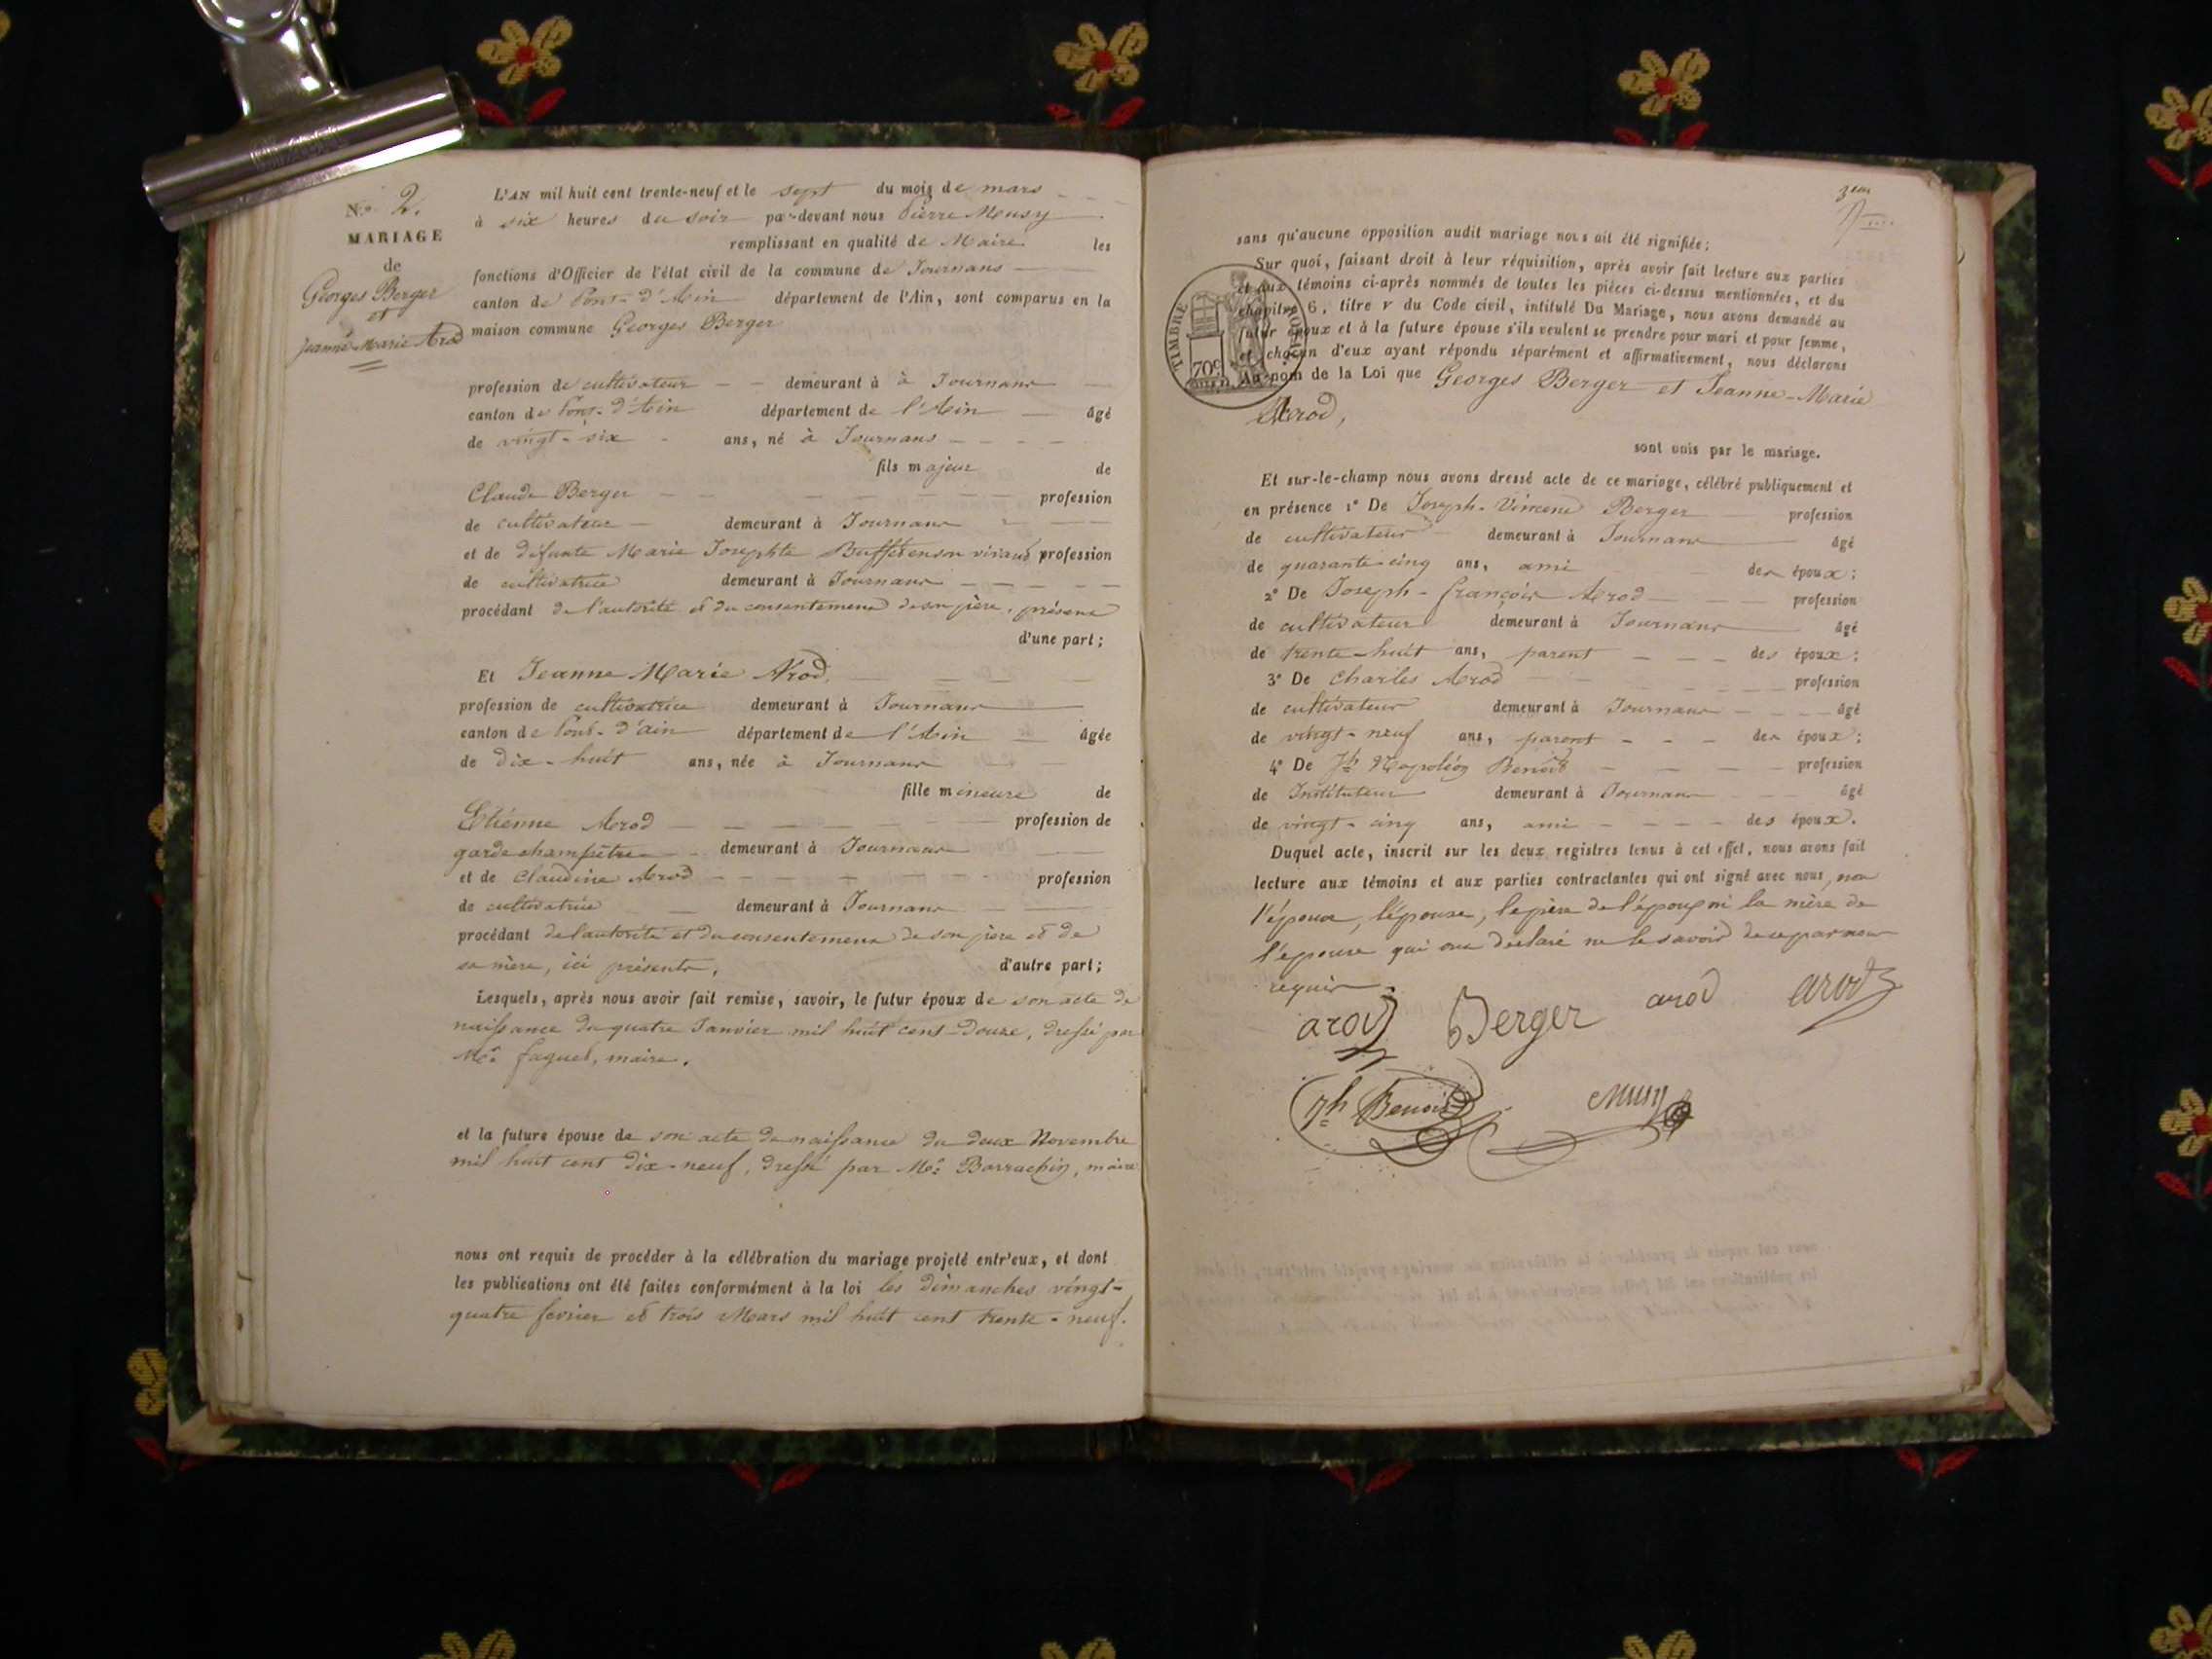 N.o 2.
MARIAGE
de
Georges Berger
et
Jeanne Marie Arod
L'AN mil huit cent trente-neuf et le sept du mois de mars
à six heures du soir par-devant nous Pierre Musy
remplissant en qualité de Maire les
fonctions d'Officier de l'état civil de la commune de Journans
canton de Pont-d'Ain département de l'Ain, sont comparus en la
maison commune Georges Berger
profession de cultivateur demeurant à à Journans
canton de Pont-d'Ain département de l'Ain âgé
de vingt-six ans, né à Journans
fils majeur de
Claude Berger profession
de cultivateur demeurant à Journans
et de défunte Marie Josephte vivant profession
de cultivatrice demeurant à Journans
procédant de l'autorité et du consentement de son père, présent
d'une part;
Et Jeanne Marie Arod,
profession de cultivatrice demeurant à Journans
canton de Pont-d'ain département de l'Ain âgée
de dix-huit ans, née à Journans
fille mineure de
Etienne Arod profession de
garde champêtre demeurant à Journans
et de Claudine Arod profession
de cultivatrice demeurant à Journans
procédant de l'autorité et du consentement de son père et de
sa mère, ici présents, d'autre part;
Lesquels, après nous avoir fait remise, savoir, le futur époux de son acte de
naissance du quatre Janvier mil huit cent douze, dressé par
Mr. faguet, maire.
et la future épouse de son acte de naissance du deux Novembre
mil huit cent dix-neuf, dressé par Mr. Barrachin, maire
nous ont requis de procéder à la célébration du mariage projeté entr'eux, et dont
les publications ont été faites conformément à la loi les dimanches vingt-
quatre fevrier et trois Mars mil huit cent trente-neuf.
sans qu'aucune opposition audit mariage nous ait été signifiée;
Sur quoi, faisant droit à leur réquisition, après avoir fait lecture aux parties
et aux témoins ci-après nommés de toutes les pièces ci-dessus mentionnées, et du
chapitre 6, titre V du Code civil, intitulé Du Mariage, nous avons demandé au
futur époux et à la future épouse s'ils veulent se prendre pour mari et pour femme,
et chacun d'eux ayant répondu séparément et affirmativement, nous déclarons
Au nom de la Loi que Georges Berger et Jeanne-Marie
Arod,
TIMBRE ROYAL
70c
sont unis par le mariage.
Et sur-le-champ nous avons dressé acte de ce mariage, célébré publiquement et
en présence 1° De Joseph-Vincent Berger profession
de cultivateur demeurant à Journans âgé
de quarante-cinq ans, ami des époux;
2° De Joseph-françois Arod profession
de cultivateur demeurant à Journans âgé
de trente-huit ans, parent des époux;
3° De Charles Arod profession
de cultivateur demeurant à Journans âgé
de vingt-neuf ans, parent des époux;
4° De Jh Napoléon Benoit profession
de Instituteur demeurant à Journans âgé
de vingt-cinq ans, ami des époux.
Duquel acte, inscrit sur les deux registres tenus à cet effet, nous avons fait
lecture aux témoins et aux parties contractantes qui ont signé avec nous, non
l'époux, l'épouse, le père de l'époux ni la mère de
l'épouse qui ont déclaré ne le savoir de ce par nous
requis.
arod Berger arod arod
Jh Benoit Musy